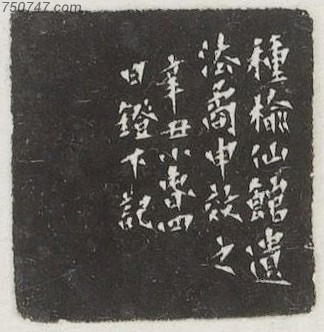 750747.com
種榆仙館遺
法矞申之
辛丑小四
日鐙下記